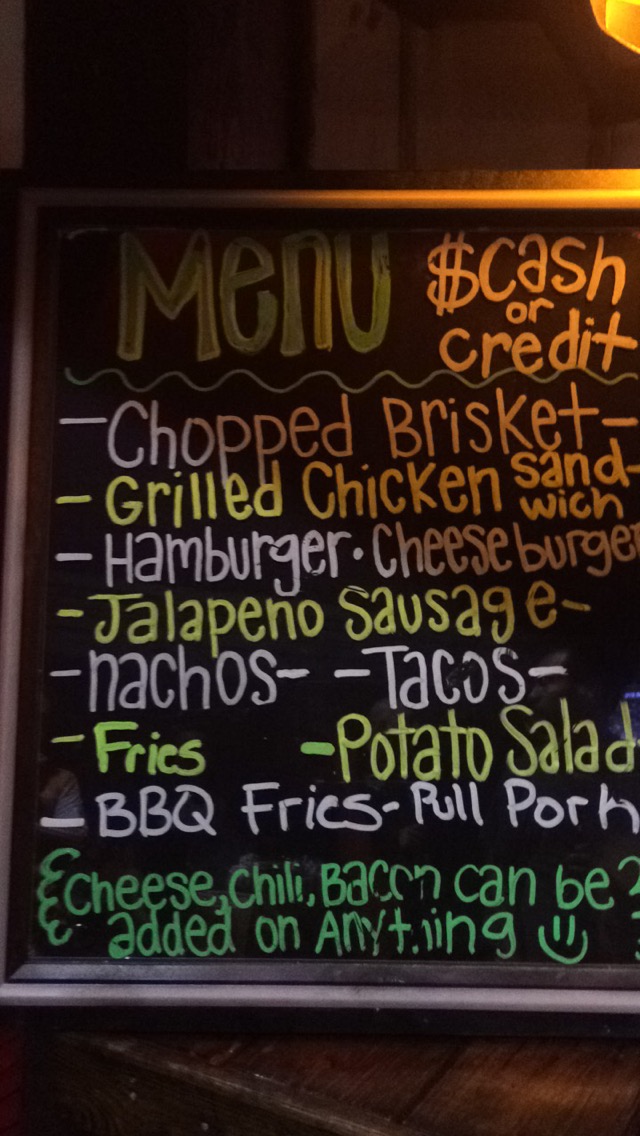 Menu $cash
or
credit
-Chopped Brisket-
-Grilled Chicken Sand-
wich
-Hamburger·Cheeseburger
-Jalapeno Sausage-
-nachos- -Tacos-
-Fries -Potato Salad
-BBQ Fries-Pull Pork
Cheese, Chili, Bacon can be
added on Anything